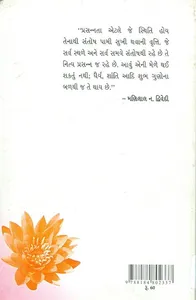 "પ્રસન્નતા એટલે જે સ્થિતિ હોય
તેનાથી સંતોષ પામી સુખી થવાની વૃત્તિ. જે
સર્વ સ્થળે અને સર્વ સમયે સંતોષથી રહે છે તે
નિત્ય પ્રસન્ન જ રહે છે. આવું એની મેળે થઈ
શકતું નથી; ધૈર્ય, શાંતિ આદિ શુભ ગુણોના
બળથી જ તે થાય છે."
– મણિલાલ ન. દ્વિવેદી
રૂ. ૭૦